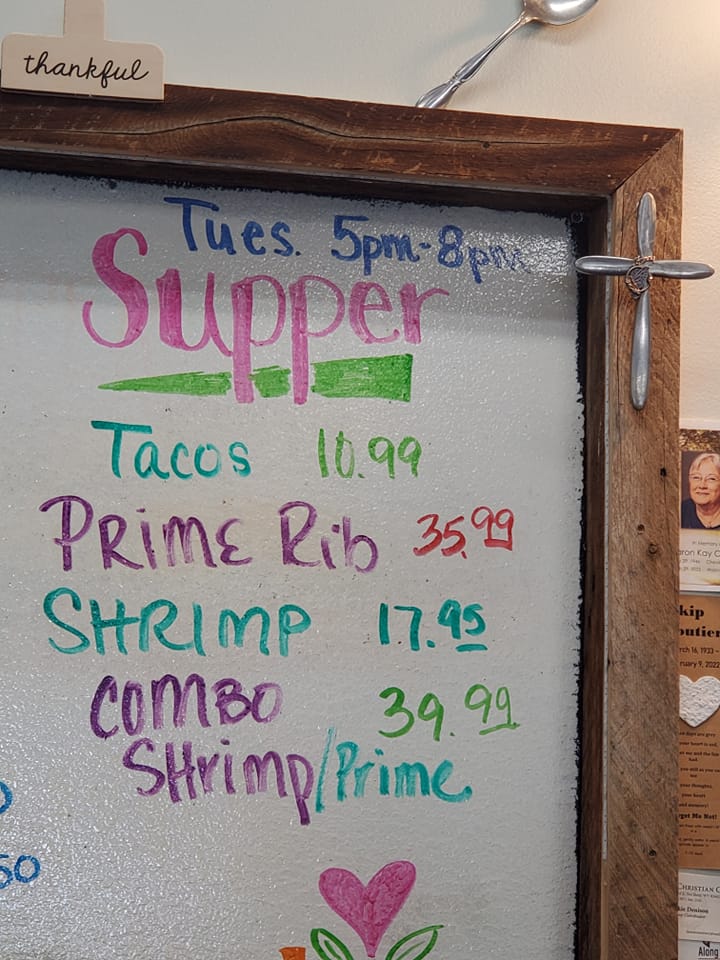 thankful
Tues. 5pm-8pm
Supper
Tacos 10.99
PRIME Rib 35.99
SHRIMP 17.95
COMBO 39.99
SHrimp/Prime
50
In Memory
kip
rch 16, 1933 –
ruary 9, 2022
your heart
get Me Not!
CHRISTIAN
kie Denison
Along